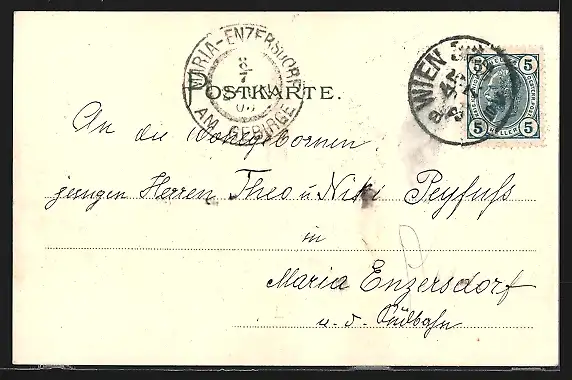 MARIA-ENZERSDORF
AM GEBIRGE
8
7
POSTKARTE.
WIEN
5 5
5 5
HELLER
An die Wohlgebornen
jungen Herren Theo u Niki Peyfuß
in
Maria Enzersdorf
u. d. Südbahn